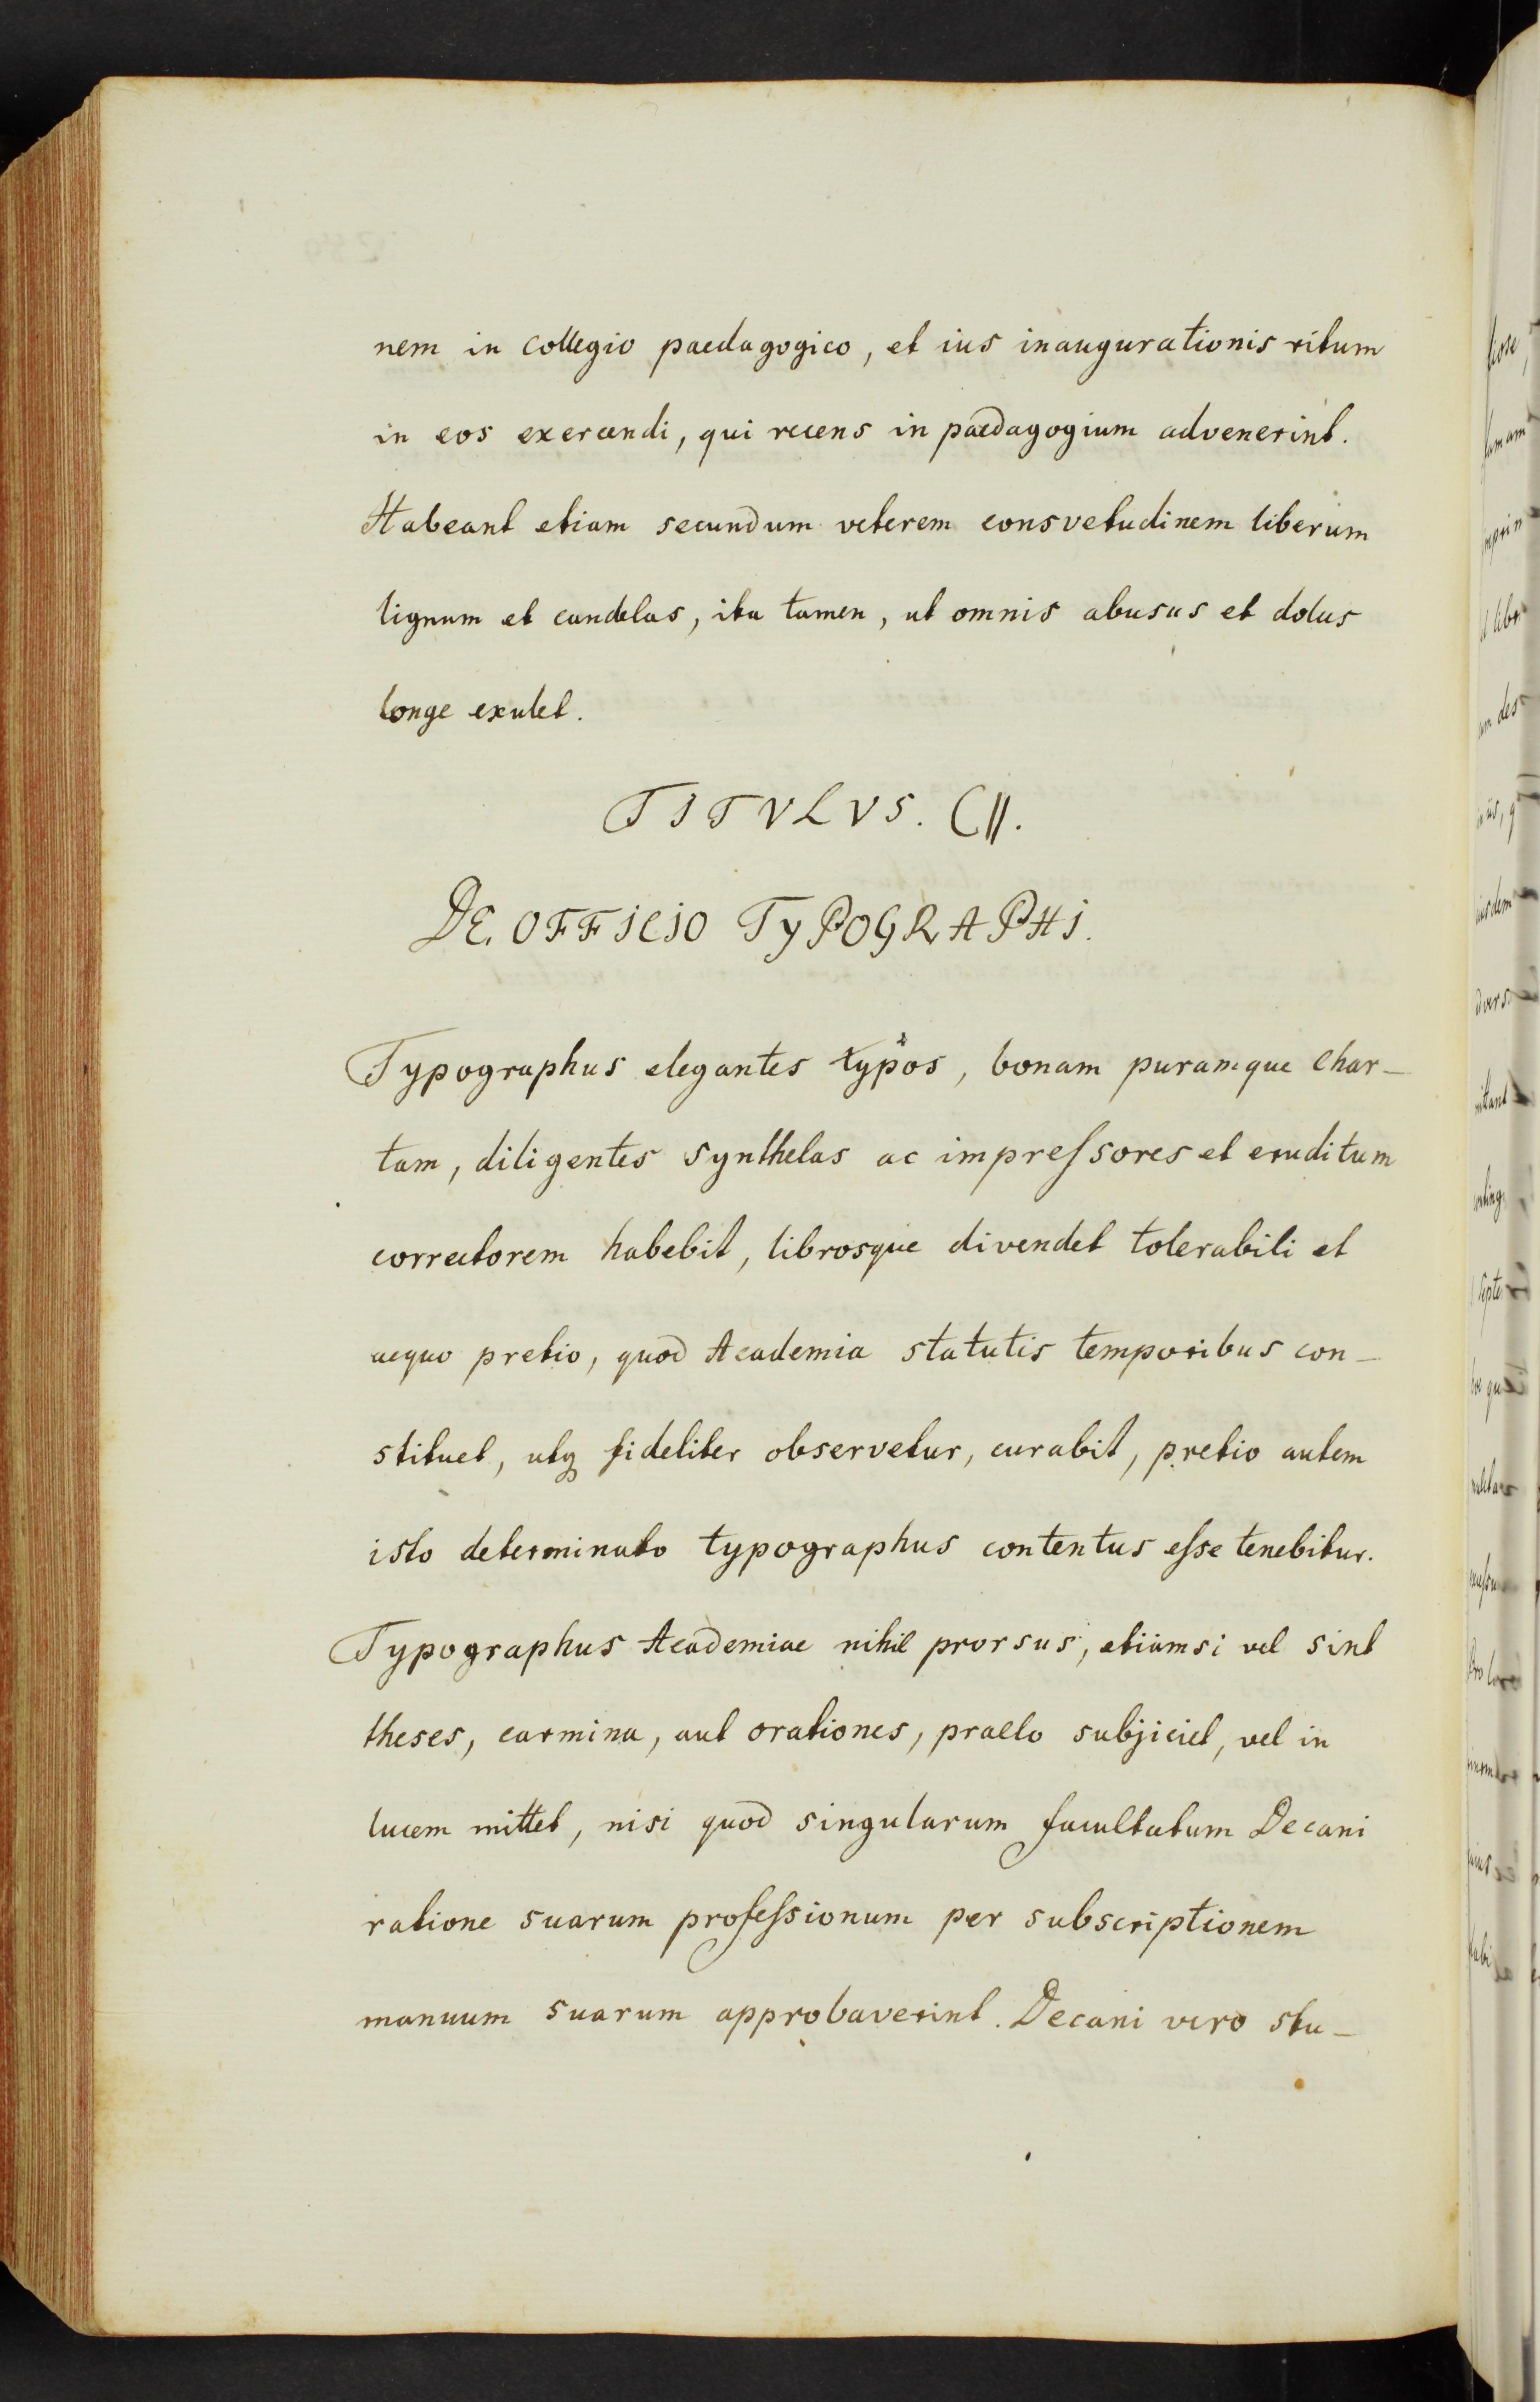 nem in collegio paedagogico, et ius inaugurationis ritum
in eos exercendi, qui recens in paedagogium advenerint.
Habeant etiam secundum veterem consvetudinem liberum
lignum et candelas, ita tamen, ut omnis abusus et dolus
longe exulet.
TITVLVS. CII.
DE OFFICIO TYPOGRAPHI.
Typographus elegantes typos, bonam puramque char-
tam, diligentes synthetas ac impreſsores et eruditum
correctorem habebit, librosque divendet tolerabili et
aequo pretio, quod Academia statutis temporibus con-
stituet, utq fideliter observetur, curabit, pretio autem
isto determinato typographus contentus eſse tenebitur.
Typographus Academiae nihil prorsus, etiamsi vel sint
theses, carmina, aut orationes, praelo subjiciet, vel in
lucem mittet, nisi quod singularum facultatum Decani
ratione suarum profeſsionum per subscriptionem
manuum suarum approbaverint. Decani vero stu-